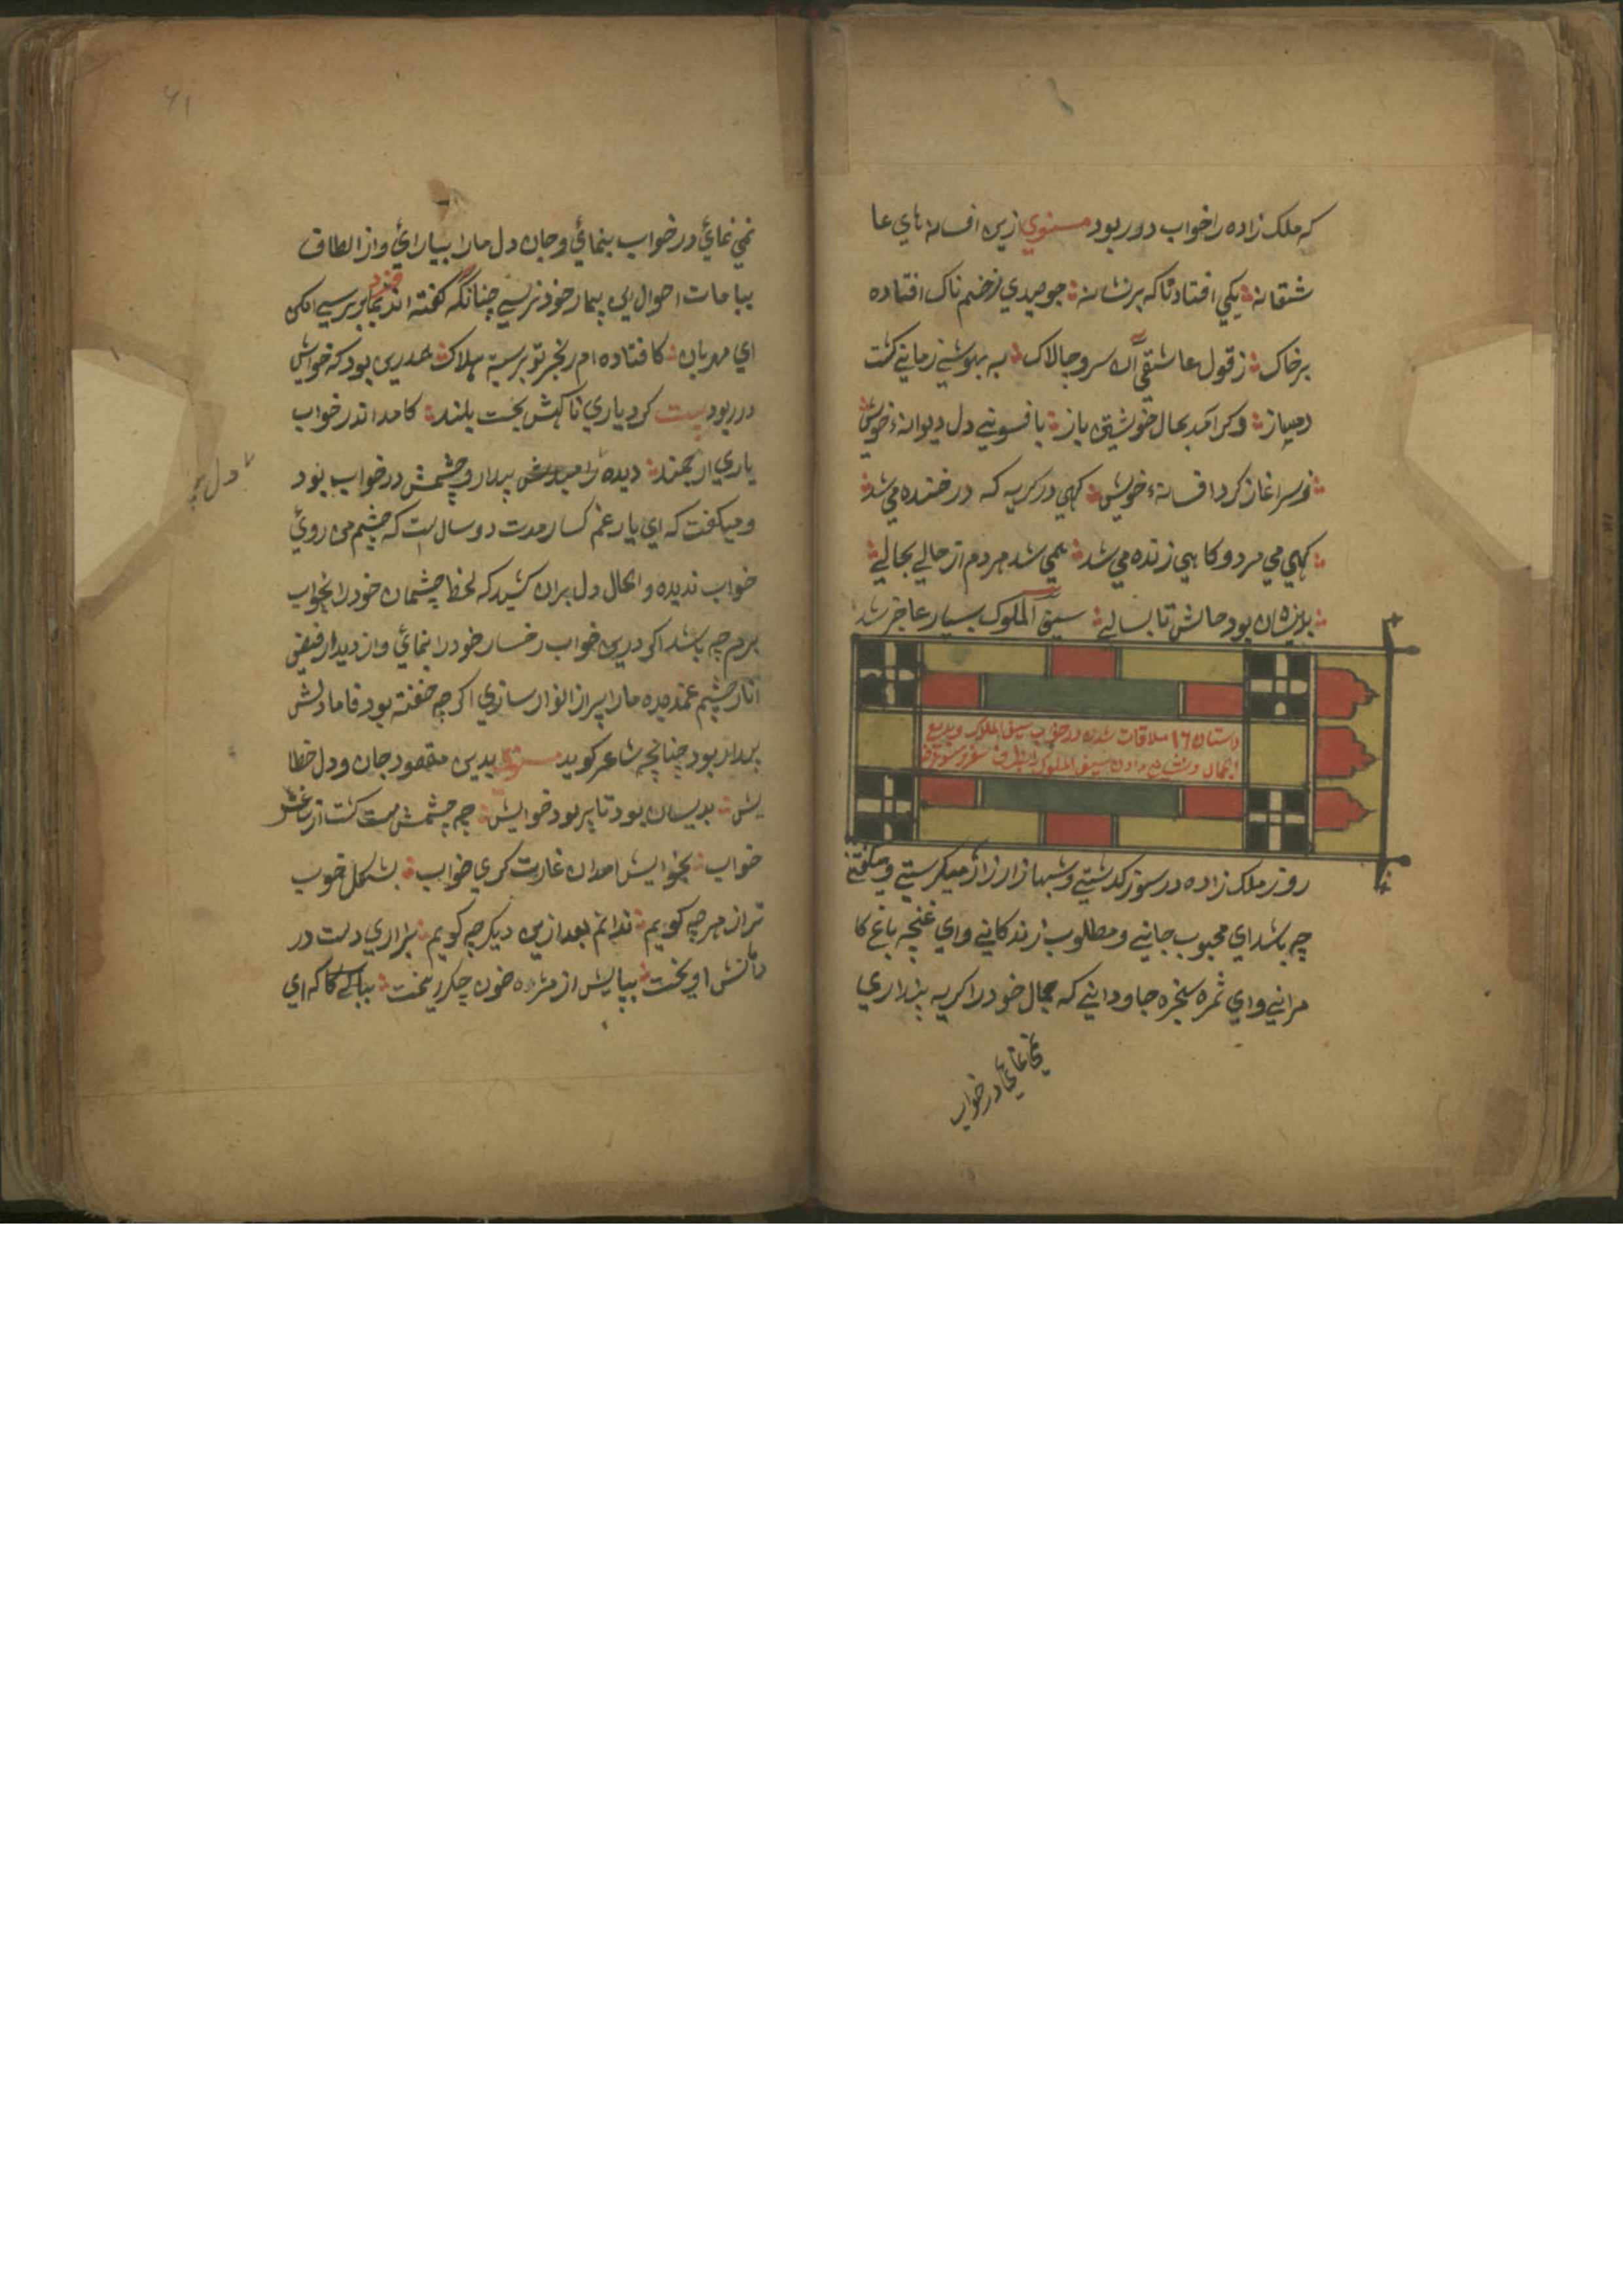 که ملک زاده را خواب در ربود مسنوي ازین افسانه هاي عا
شقانه یکي افتاد ناکه بر نشانه جو صیدي زخم ناک افتاده
برخاک ز قول عاشقي آن سرو جالاک به بیهوشي زماني کشت
دمساز وکر آمد بحال خویشتن باز بافسوني دل دیوانهٔ خویش
سر اغاز کرد افسانهٔ خویش کهي در کریه که در خنده مي شد
کهي مي مرد و کاهي زنده مي شد همي شد هر دم از حالي بحالي
بدینسان بود حالش تا بسالي سیف الملوک بسیار عاجز شد
داستان ۱۶ ملاقات شدن در خواب سیف الملوک و بدیع
الجمال و نشان دادن سیف الملوک را
روز ملک زاده در سوز کدشتي و شبها زار زار میکریستي و میکفتي
چه باشد اي محبوب جاني و مطلوب زندکاني و اي غنچه باغ کا
مراني و اي ثمره شجره جاوداني که جمال خود را کر به بیداري
نمي نمائي در خواب
۶۱
نمي نمائي در خواب بنمائي و جان و دل ما را بیارائي و از الطاف
احوال این بیمار خود پرسي چنانکه کفته اند
اي مهربان کافتاده ام هلاک درین بود که خوابش
در ربود بیت کرد یاري ناکهش بخت بلند کامد اندر خواب
یاري ارجمند دیده را بیدار و چشمش در خواب بود
و میکفت که اي یار غم کسار مدت دو سال است که چشم من روي
خواب ندیده و الحال دل بران کشید که لحظه چشمان خود را بخواب
برم چه باشد اکر درین خواب رخسار خود را نمائي و از دیدار فیض
انار چشم غمدیده ما را پر از انوار سازي اکر چه خفته بود فاما دلش
بیدار بود چنانچه شاعر کوید مسنوي بدین مقصود جان و دل خطا
بش بدینسان بود تا بربود خوابش چه چشمش مست کشت از ساغر
خواب بخوابش امد ان غارت کري خواب بشکل خوب
تر از هر چه کویم ندانم بعد ازین دیکر چه کویم بزاري دست در
دامنش اویخت بپایش از مژه خون جکر ریخت که اي